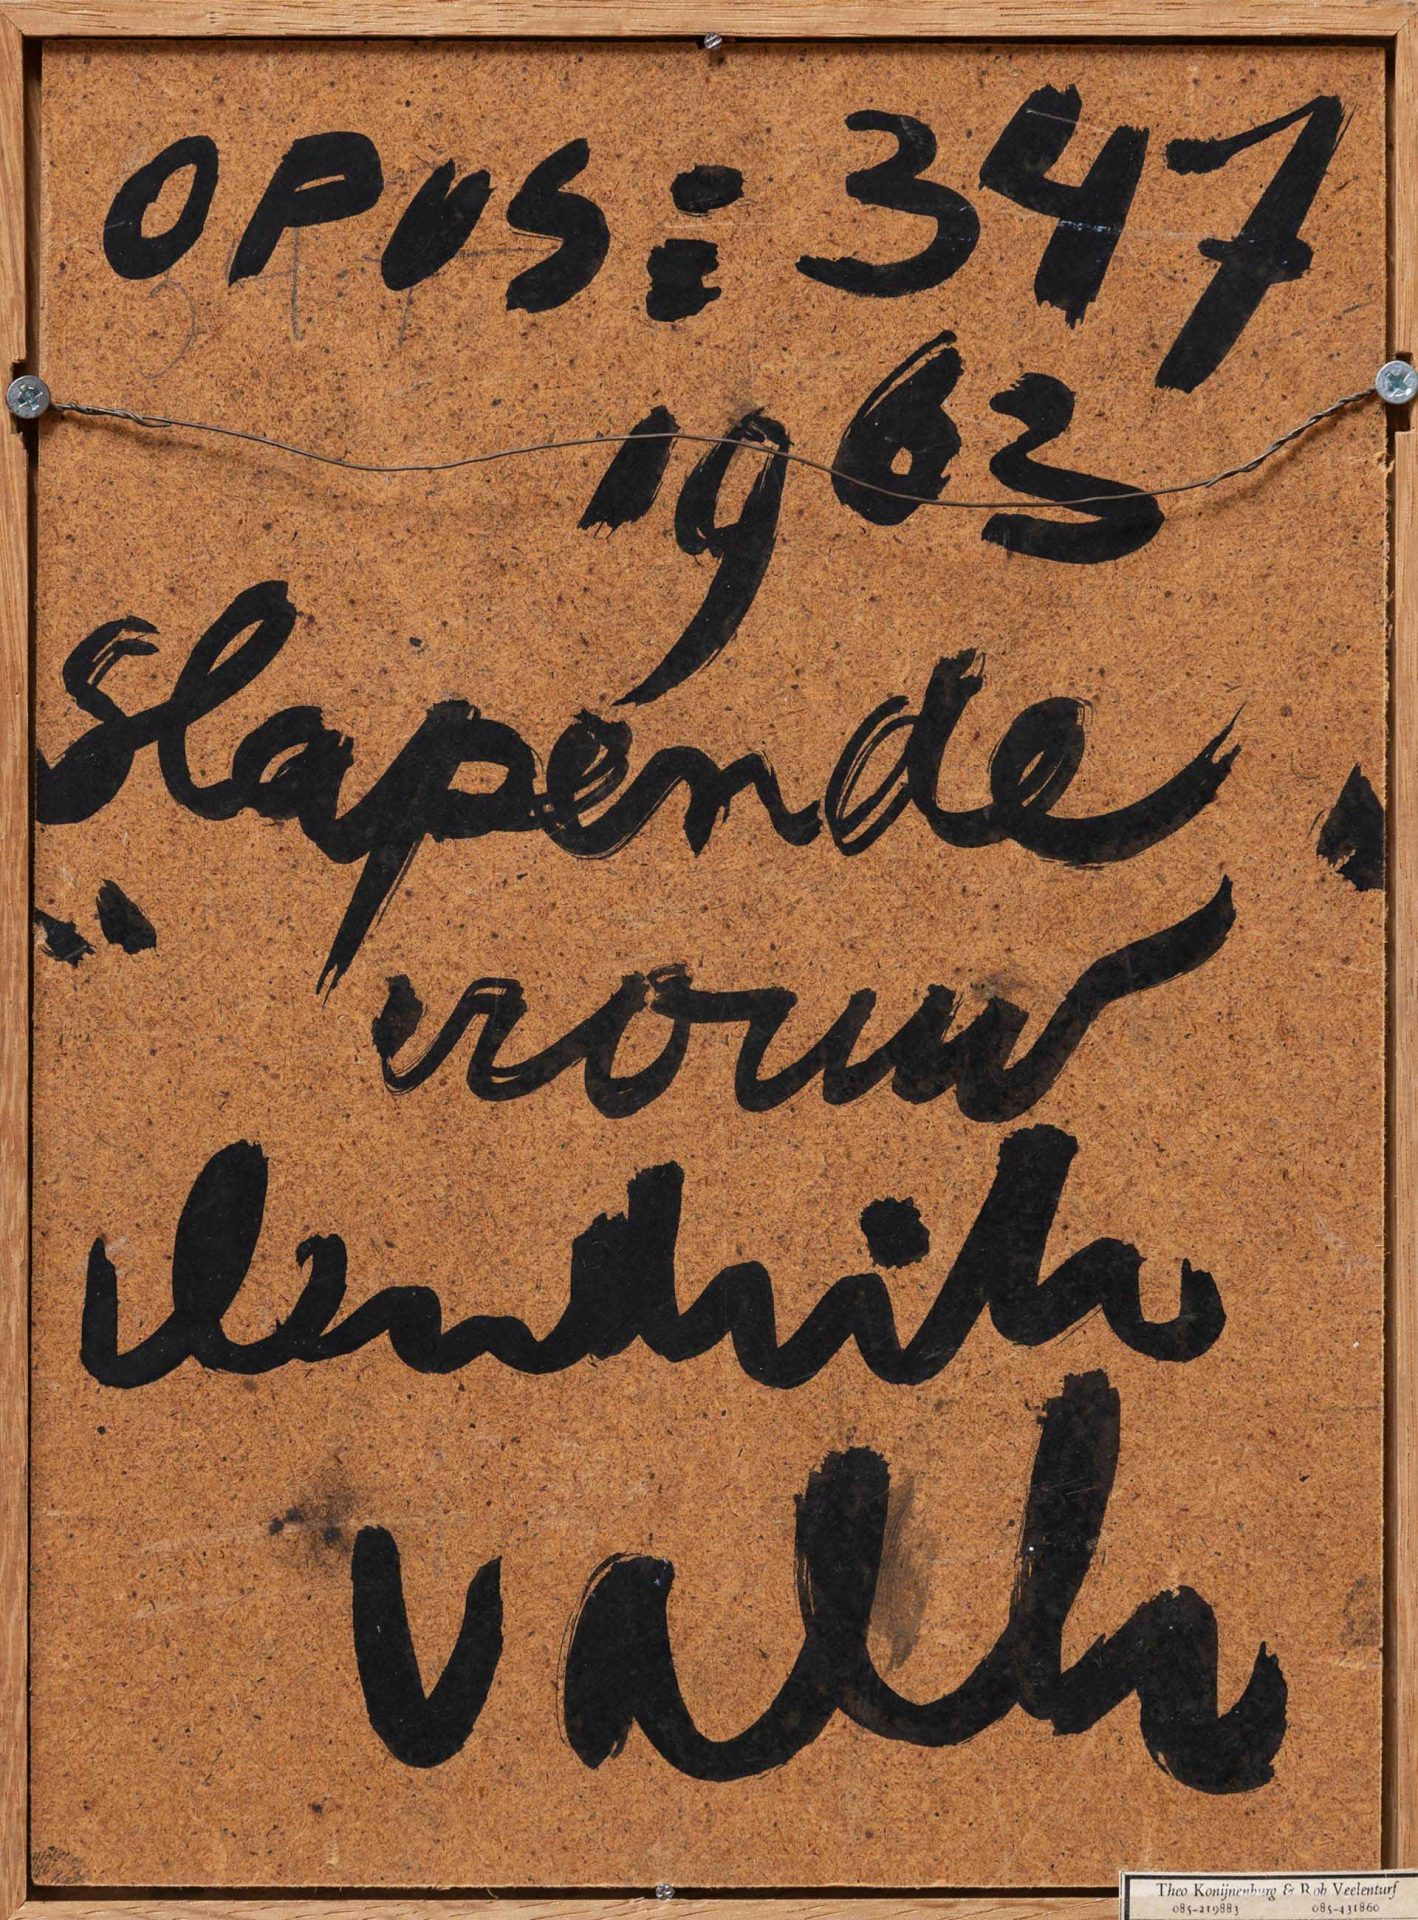 opus: 347
347
1963
"slapende
vrouw"
Hendrik
Valk
Theo Konijnenburg & Rob Veelenturf
085-219883 085-431860